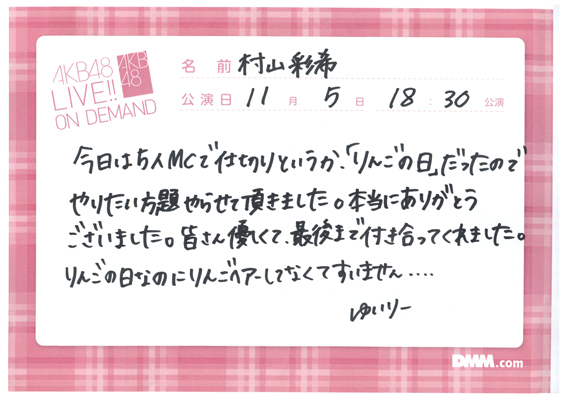 AKB48
LIVE!!
ON DEMAND
AKB
48
名前 村山彩希
公演日 11月 5日 18:30公演
今日は5人MCで仕切りというか、「りんごの日」だったので
やりたい方題やらせて頂きました。本当にありがとう
ございました。皆さん優しくて、最後まで付き合ってくれました。
りんごの日なのにりんごヘアーしてなくてすいません....
ゆいりー
DMM.com